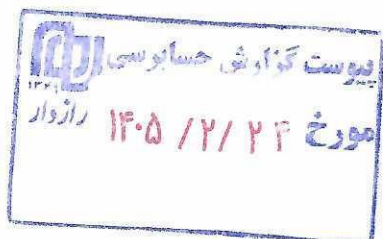 پیوست گزارش حسابرسی
۱۳۶۹
رازدار
مورخ ۱۴۰۵ / ۲ / ۲۴